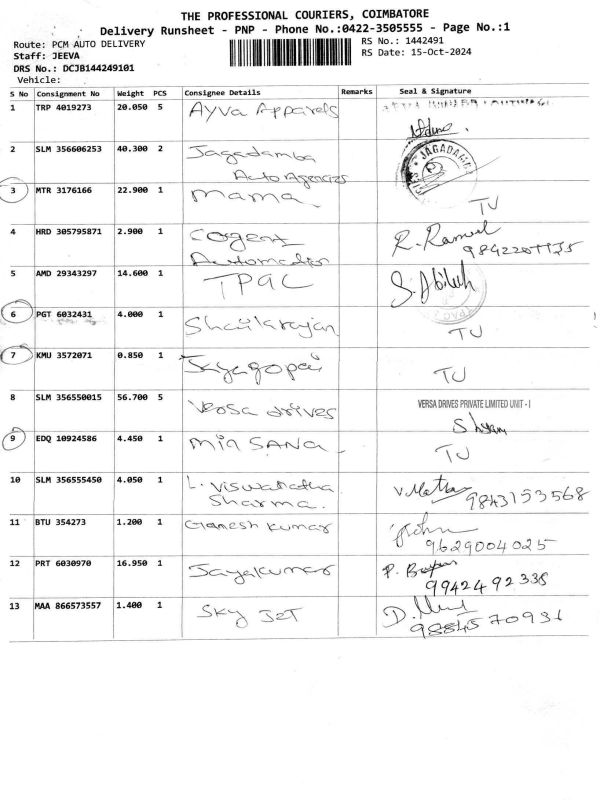 THE PROFESSIONAL COURIERS, COIMBATORE
Delivery Runsheet - PNP - Phone No.:0422-3505555 - Page No.:1
Route: PCM AUTO DELIVERY RS No.: 1442491
Staff: JEEVA RS Date: 15-Oct-2024
DRS No.: DCJB144249101
Vehicle:
S No Consignment No Weight PCS Consignee Details Remarks Seal & Signature
1 TRP 4019273 20.050 5 Ayva Apparels
2 SLM 356606253 40.300 2 Jagadamba
Auto Agencies JAGADAMBA
3 MTR 3176166 22.900 1 Mama TU
4 HRD 305795871 2.900 1 Cogent R.
Automation
5 AMD 29343297 14.600 1 TPAC S.
6 PGT 6032431 4.000 1 TU
7 KMU 3572071 0.850 1 Jayagopal TU
8 SLM 356550015 56.700 5 Versa drives VERSA DRIVES PRIVATE LIMITED UNIT - I
Shyam
9 EDQ 10924586 4.450 1 Mia SANA TU
10 SLM 356555450 4.050 1 L. Viswanatha
Sharma 9843153568
11 BTU 354273 1.200 1 Ganesh Kumar
9629004025
12 PRT 6030970 16.950 1 Jayakumar P.
9942492338
13 MAA 866573557 1.400 1 Sky Jet D.
9884570931